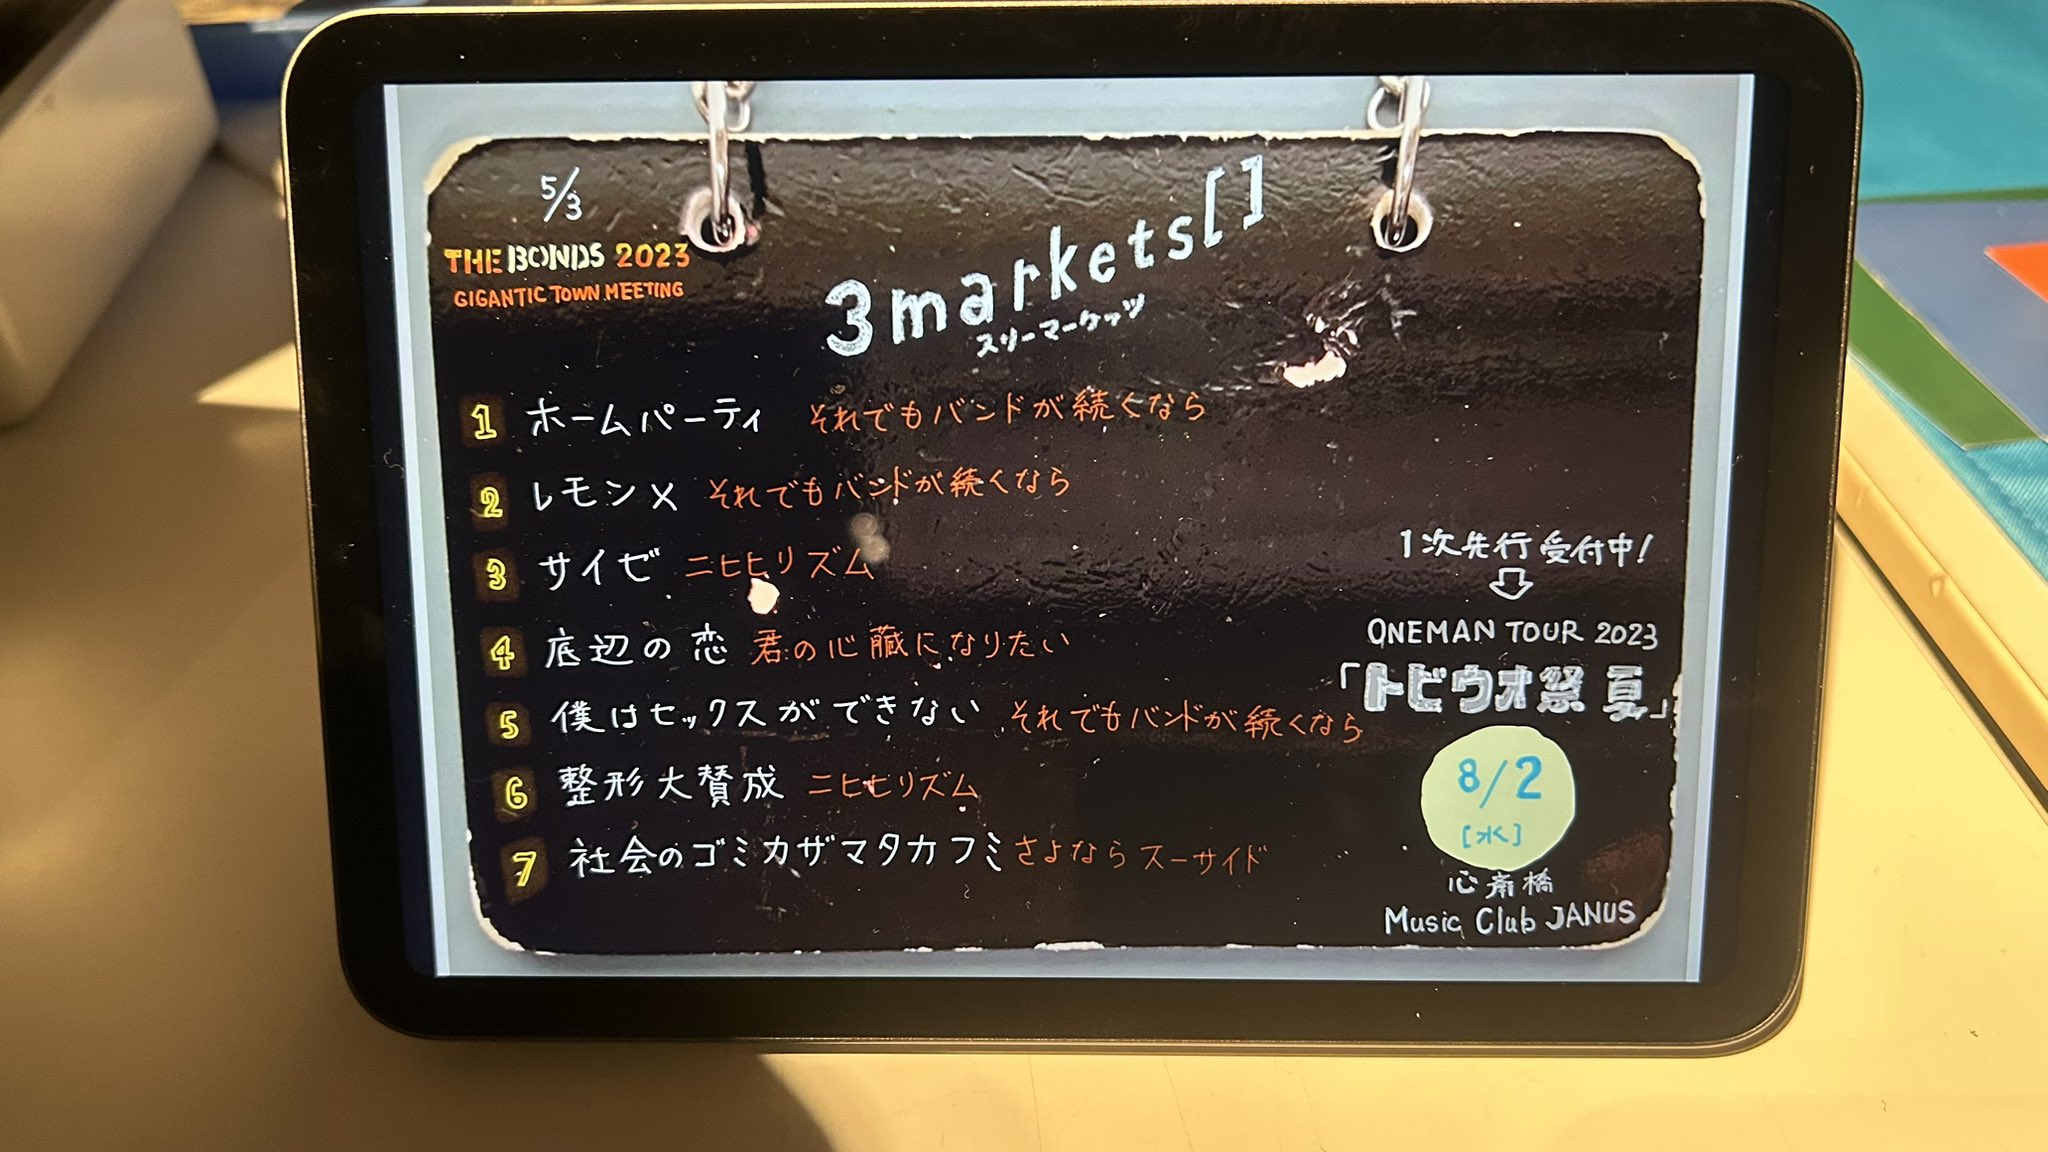 5/3
THE BONDS 2023
GIGANTIC TOWN MEETING
3markets[]
スリーマーケッツ
1 ホームパーティ それでもバンドが続くなら
2 レモンX それでもバンドが続くなら
3 サイゼ ニヒヒリズム
4 底辺の恋 君の心臓になりたい
5 僕はセックスができない それでもバンドが続くなら
6 整形大賛成 ニヒヒリズム
7 社会のゴミカザマタカフミ さよならスーサイド
1次先行受付中!
⇩
ONEMAN TOUR 2023
「トビウオ祭 夏」
8/2
[水]
心斎橋
Music Club JANUS